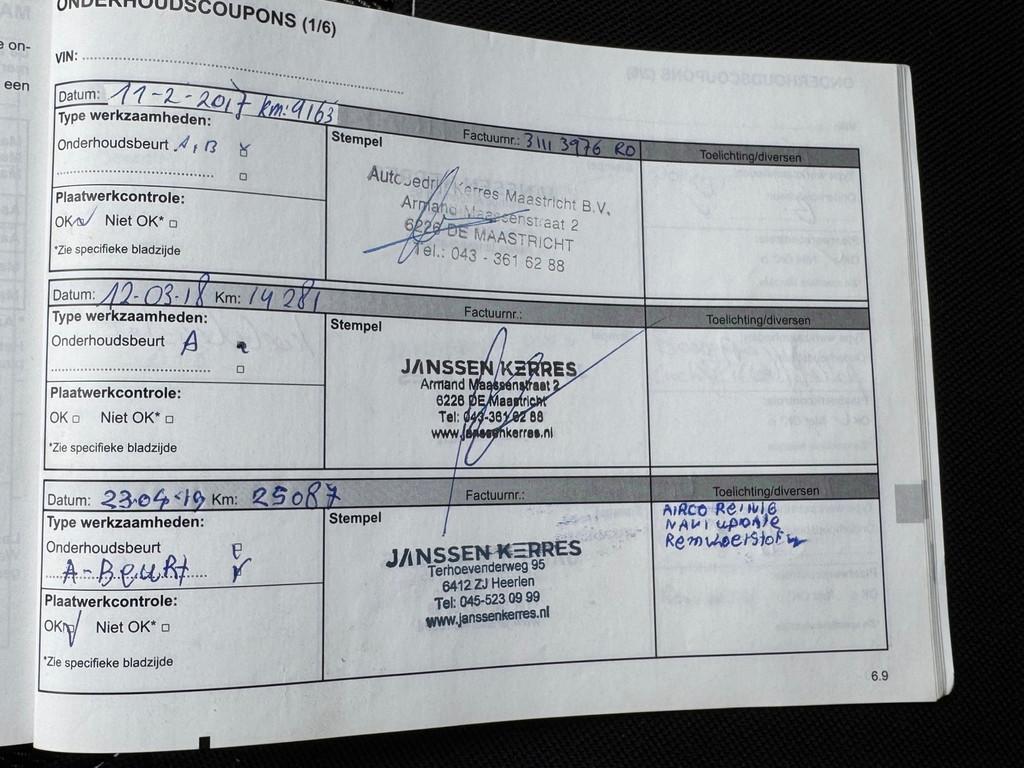 ONDERHOUDSCOUPONS (1/6)
e on-
een
VIN:
Datum: 11-2-2017 km: 9163
Type werkzaamheden:
Onderhoudsbeurt A, B
Plaatwerkcontrole:
OK Niet OK*
*Zie specifieke bladzijde
Stempel
Factuurnr.: 3111 3976 RO
Autobedrijf Kerres Maastricht B.V.
Armand Maassenstraat 2
6226 DE MAASTRICHT
Tel.: 043 - 361 62 88
Toelichting/diversen
Datum: 12-03-18 Km: 14 281
Type werkzaamheden:
Onderhoudsbeurt A
Plaatwerkcontrole:
OK Niet OK*
*Zie specifieke bladzijde
Stempel
Factuurnr.:
JANSSEN KERRES
Armand Maassenstraat 2
6226 DE Maastricht
Tel: 043-361 62 88
www.janssenkerres.nl
Toelichting/diversen
Datum: 23-04-19 Km: 25087
Type werkzaamheden:
Onderhoudsbeurt
A-Beurt
Plaatwerkcontrole:
OK Niet OK*
*Zie specifieke bladzijde
Stempel
Factuurnr.:
JANSSEN KERRES
Terhoevenderweg 95
6412 ZJ Heerlen
Tel: 045-523 09 99
www.janssenkerres.nl
Toelichting/diversen
AIRCO Reinig
NAVI update
Remvloeistof
6.9